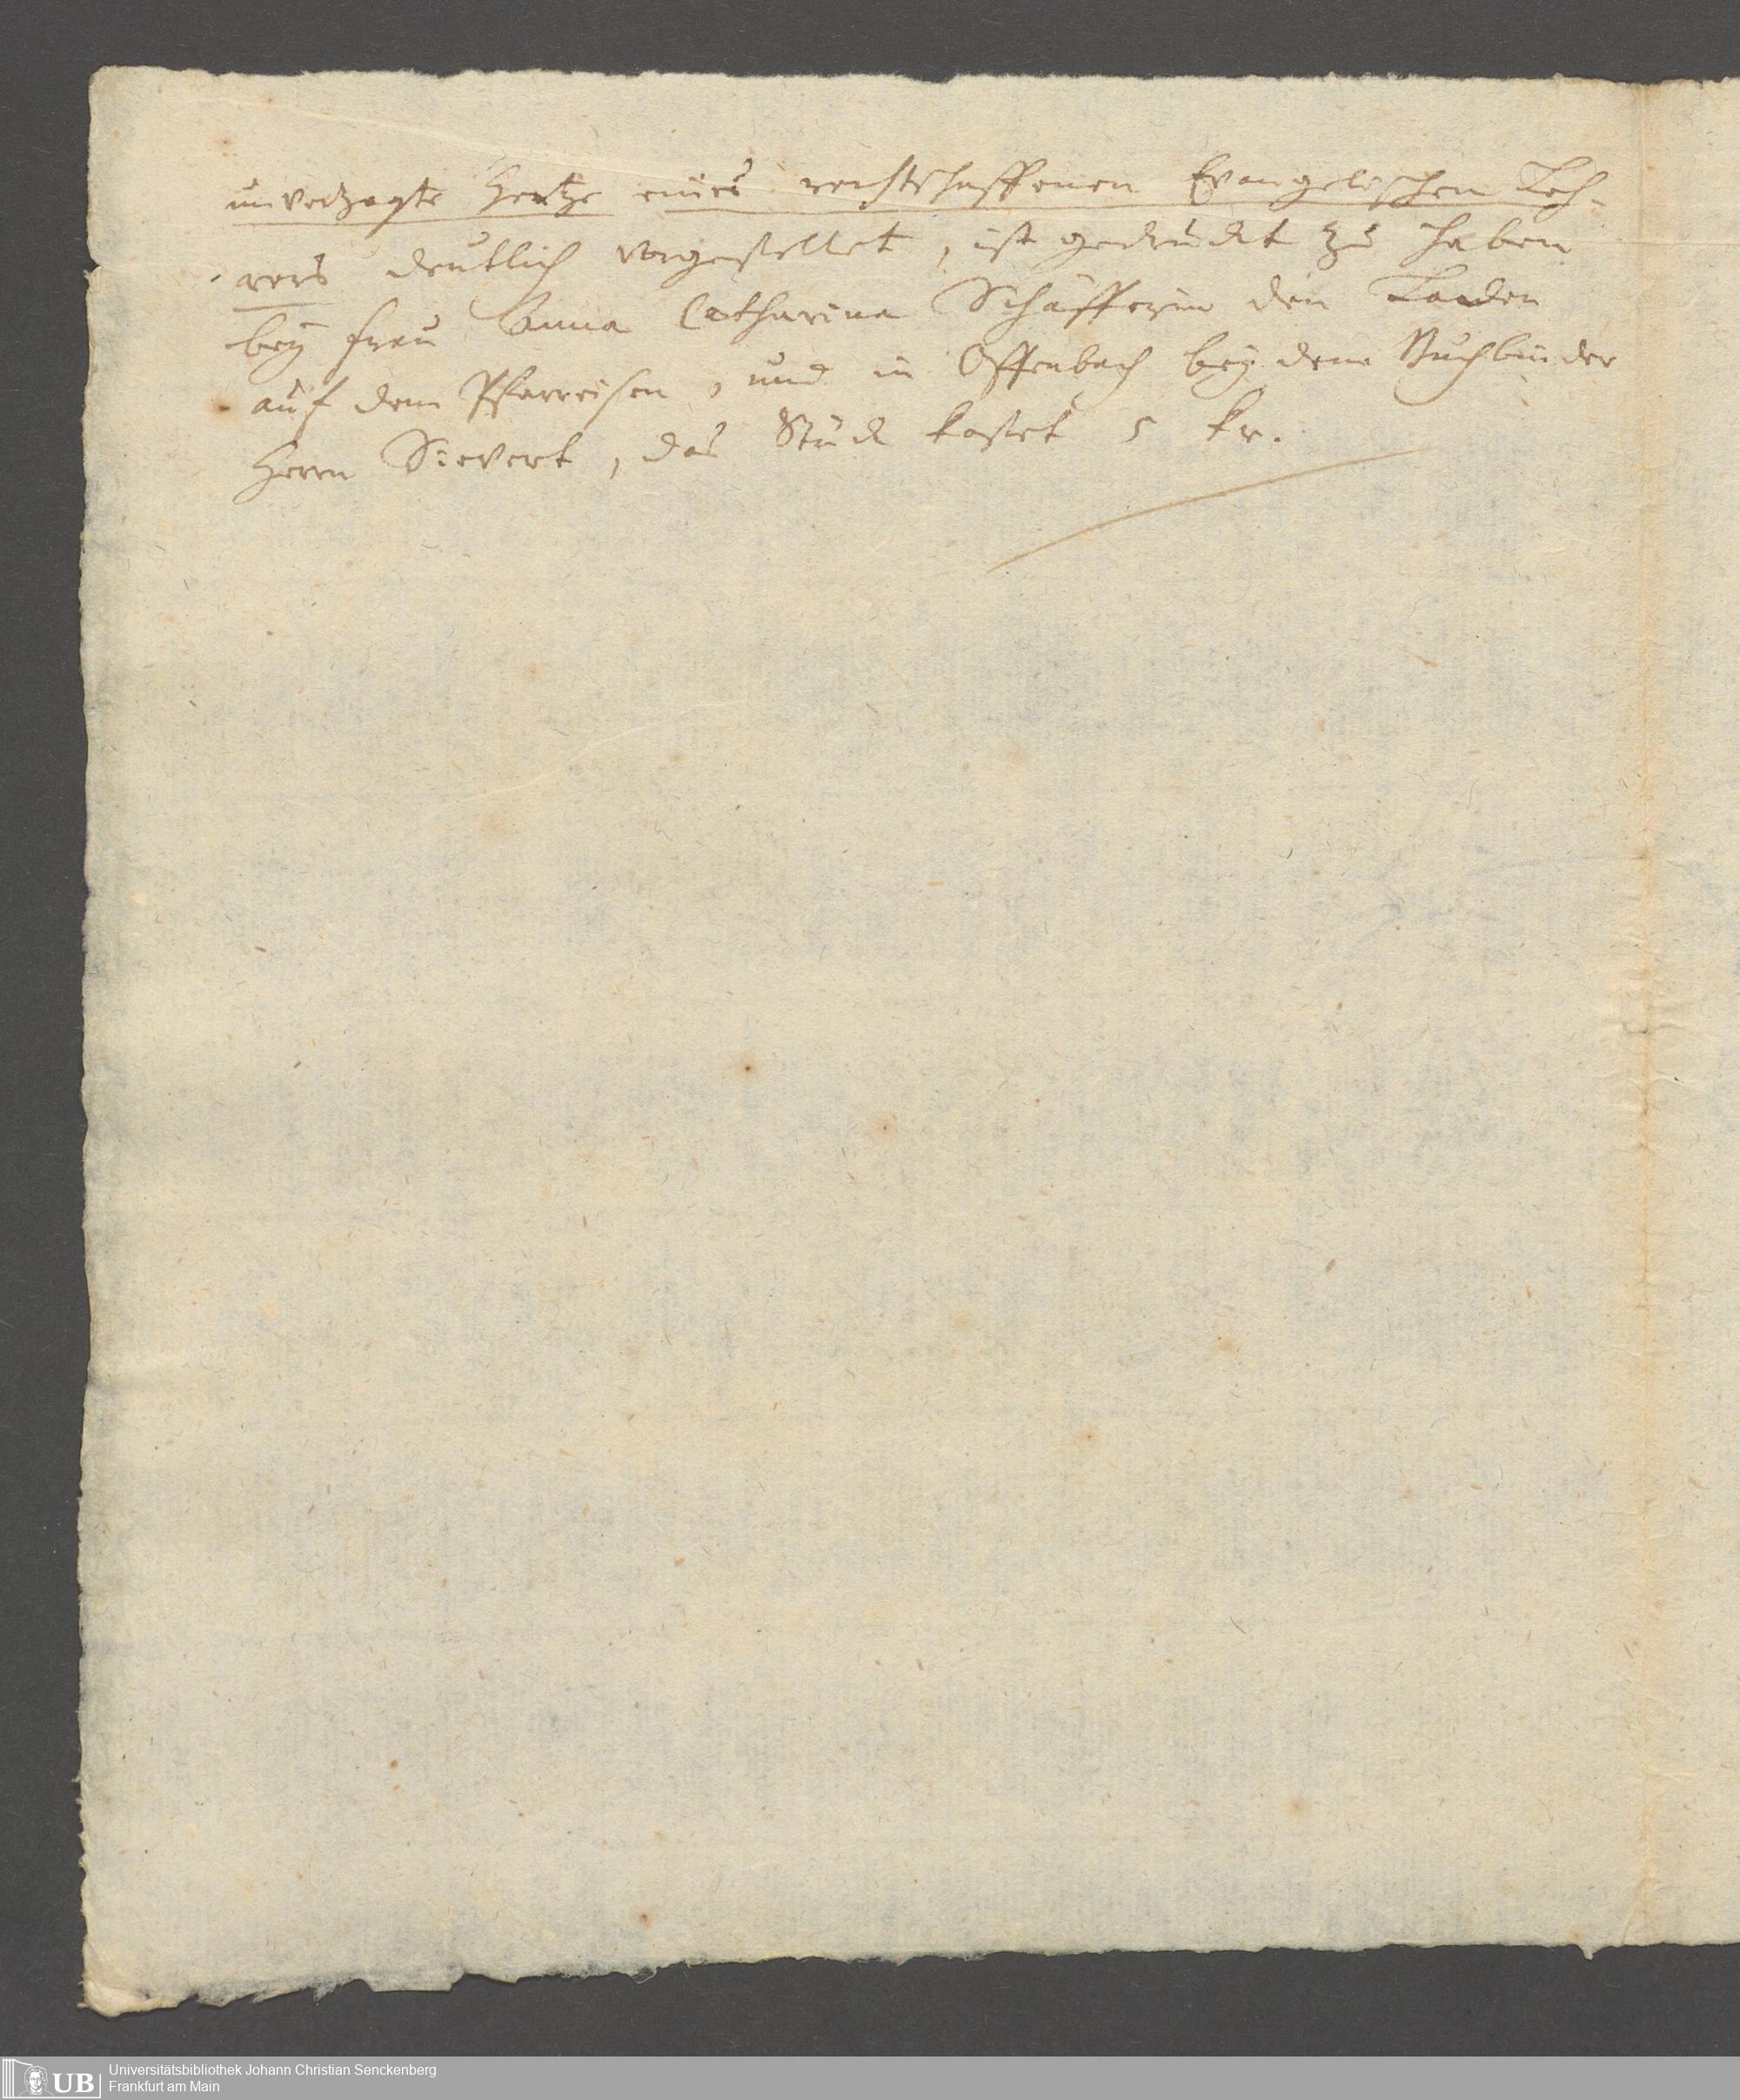 unverzagte Hertze eines rechtschaffenen Evangelischen Leh-
rers deutlich vorgestellet, ist gedruckt zu haben
bey Frau Anna Catharina Schäfferin den Laden
auf dem Pfarreisen, und in Offenbach bey dem Buchbinder
Herrn Sievert, das Stück kostet 5 kr.
UB Universitätsbibliothek Johann Christian Senckenberg
Frankfurt am Main